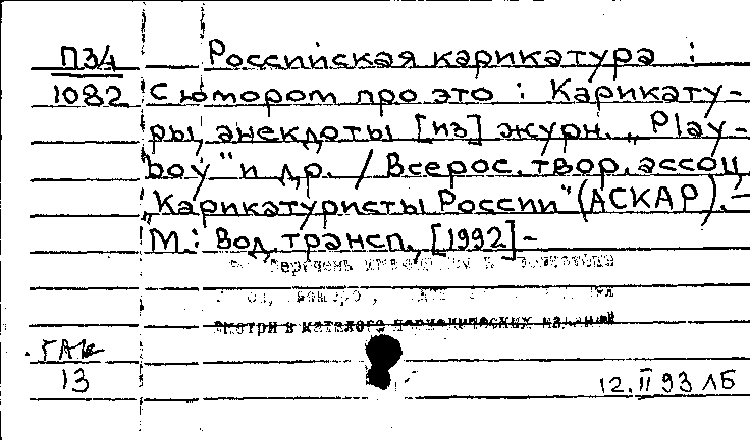 П34 Российская карикатура :
1082 С юмором про это : Карикату-
ры, анекдоты [из] журн. „Play-
boy" и др. / Всерос. твор. ассоц.
„Карикатуристы России" (АСКАР). –
М.: Вод. трансп., [1992] –
Перечень имеющихся в
смотри в каталоге периодических изданий
13 12.II 93 ЛБ